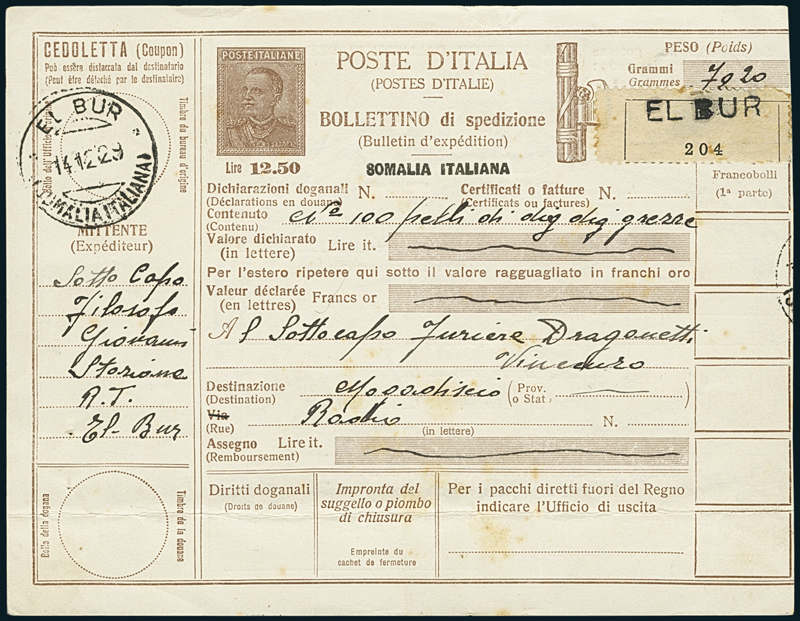 CEDOLETTA (Coupon)
Può essère distaccata dal destinatario
(Peut être détaché par le destinataire)
EL BUR
14.12.29
(SOMALIA ITALIANA)
Bollo dell'Ufficio
Timbre du bureau d'origine
MITTENTE
(Expéditeur)
Sotto Capo
Filosofo
Giovanni
Stazione
R.T.
El-Bur
Bollo della dogana
Timbre de la douane
POSTE ITALIANE
Lire 12.50
POSTE D'ITALIA
(POSTES D'ITALIE)
BOLLETTINO di spedizione
(Bulletin d'expédition)
SOMALIA ITALIANA
PESO (Poids)
Grammi
Grammes 7020
EL BUR
204
Francobolli
(1ª parte)
Dichiarazioni doganali N.
(Déclarations en douane)
Certificati o fatture N.
(Certificats ou factures)
Contenuto
(Contenu)
N° 100 pelli di dig dig grezze
Valore dichiarato
(in lettere) Lire it.
Per l'estero ripetere qui sotto il valore ragguagliato in franchi oro
Valeur déclarée
(en lettres) Francs or
Al Sottocapo Furiere Dragonetti
Vincenzo
Destinazione
(Destination) Mogadiscio (Prov. o Stat)
Via
(Rue) Radio N.
(in lettere)
Assegno Lire it.
(Remboursement)
Diritti doganali
(Droits de douane)
Impronta del
suggello o piombo
di chiusura
Empreinte du
cachet de fermeture
Per i pacchi diretti fuori del Regno
indicare l'Ufficio di uscita